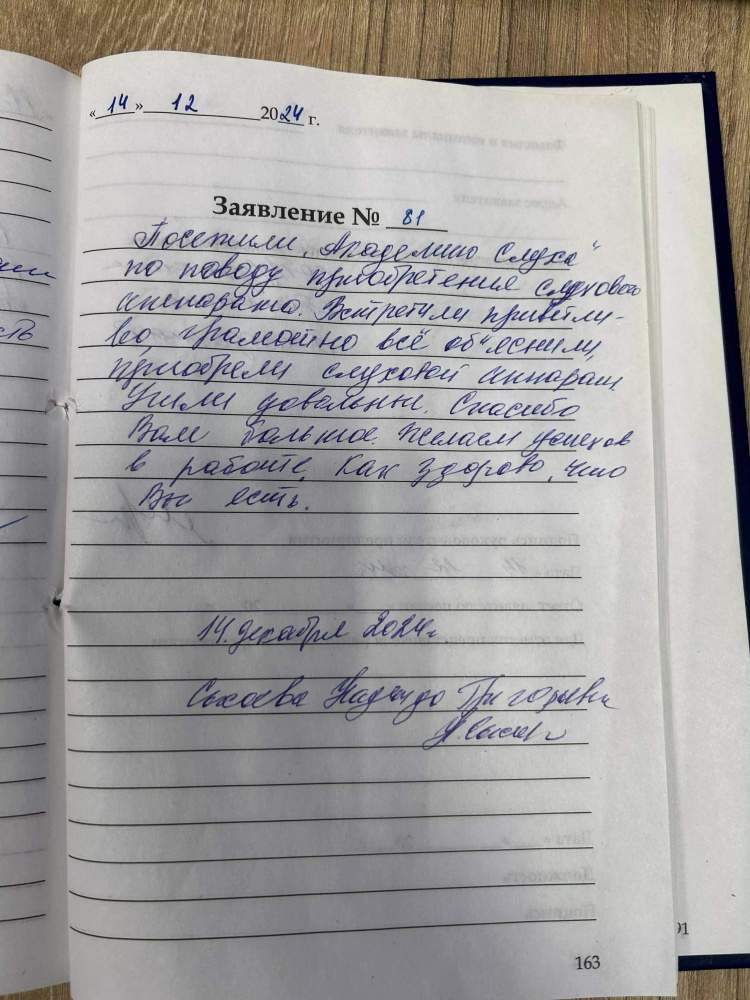 «14» 12 2024 г.
Заявление № 81
Посетили „Академию Слуха"
по поводу приобретения слухового
аппарата. Встретили приветли-
во, грамотно всё объяснили,
приобрели слуховой аппарат.
Ушли довольны. Спасибо
Вам большое. Желаем успехов
в работе. Как здорово, что
Вы есть.
14 декабря 2024г
Надежда Григорьевна
163
91